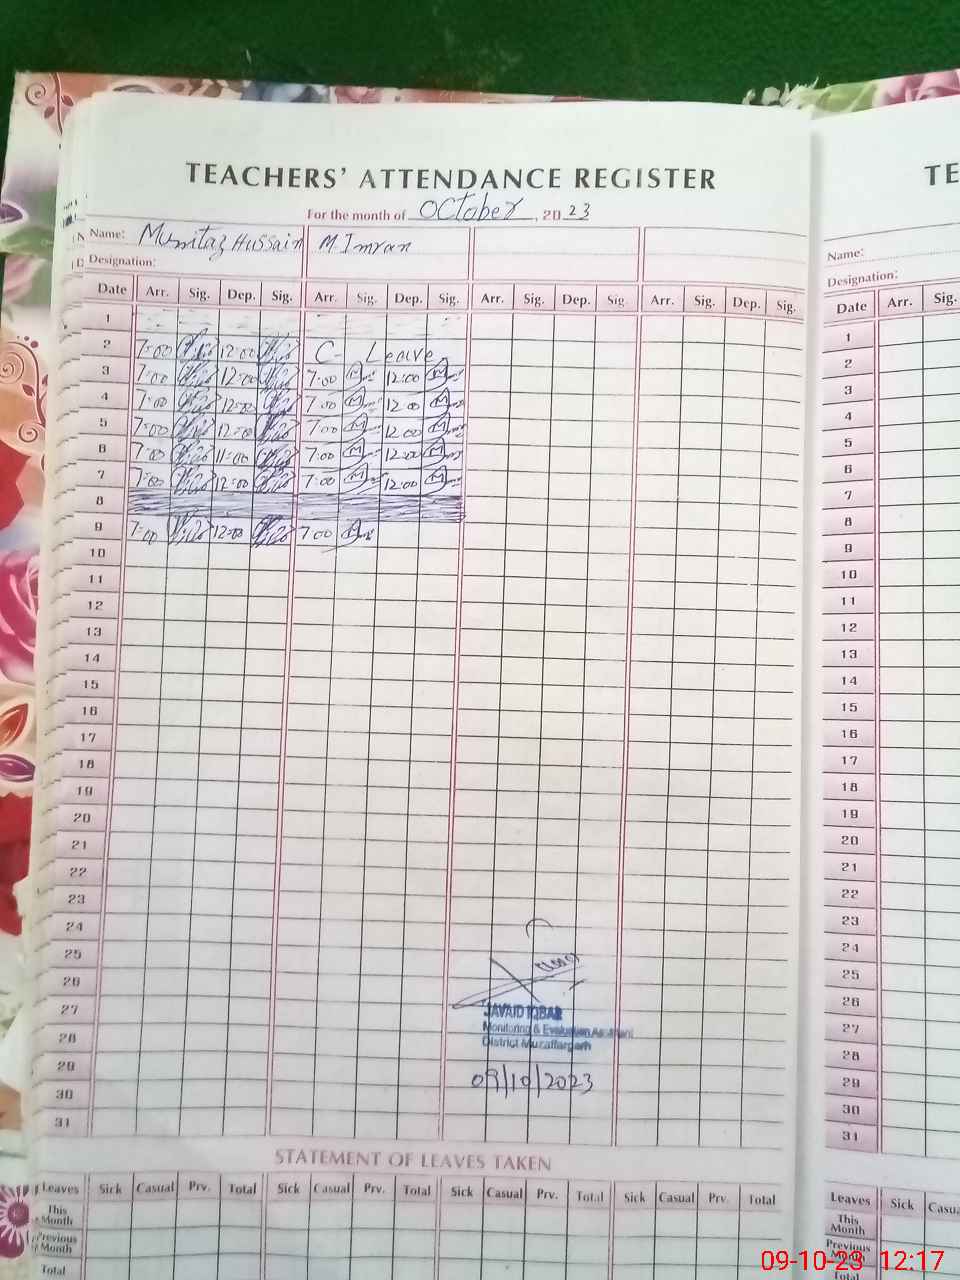 TEACHERS' ATTENDANCE REGISTER
For the month of October, 2023
Name: Mumtaz Hussain M. Imran
Designation:
Date Arr. Sig. Dep. Sig. Arr. Sig. Dep. Sig. Arr. Sig. Dep. Sig. Arr. Sig. Dep. Sig.
1
2 7=00 12=00 C- Leave
3 7=00 12=00 7:00 12:00
4 7=00 12=00 7:00 12:00
5 7=00 12=00 7:00 12:00
6 7=00 11=00 7:00 12:00
7 7=00 12=00 7:00 12:00
8
9 7=00 12=00 7:00
10
11
12
13
14
15
16
17
18
19
20
21
22
23
24
25
26
27
28
29
30
31
JAVAID IQBAL
Monitoring & Evaluation Assistant
District Muzaffargarh
09/10/2023
STATEMENT OF LEAVES TAKEN
Leaves Sick Casual Prv. Total Sick Casual Prv. Total Sick Casual Prv. Total Sick Casual Prv. Total
This Month
Previous Month
Total
TE
Name:
Designation:
Date Arr. Sig.
1
2
3
4
5
6
7
8
9
10
11
12
13
14
15
16
17
18
19
20
21
22
23
24
25
26
27
28
29
30
31
Leaves Sick Casua
This Month
Previous Month
09-10-23 12:17